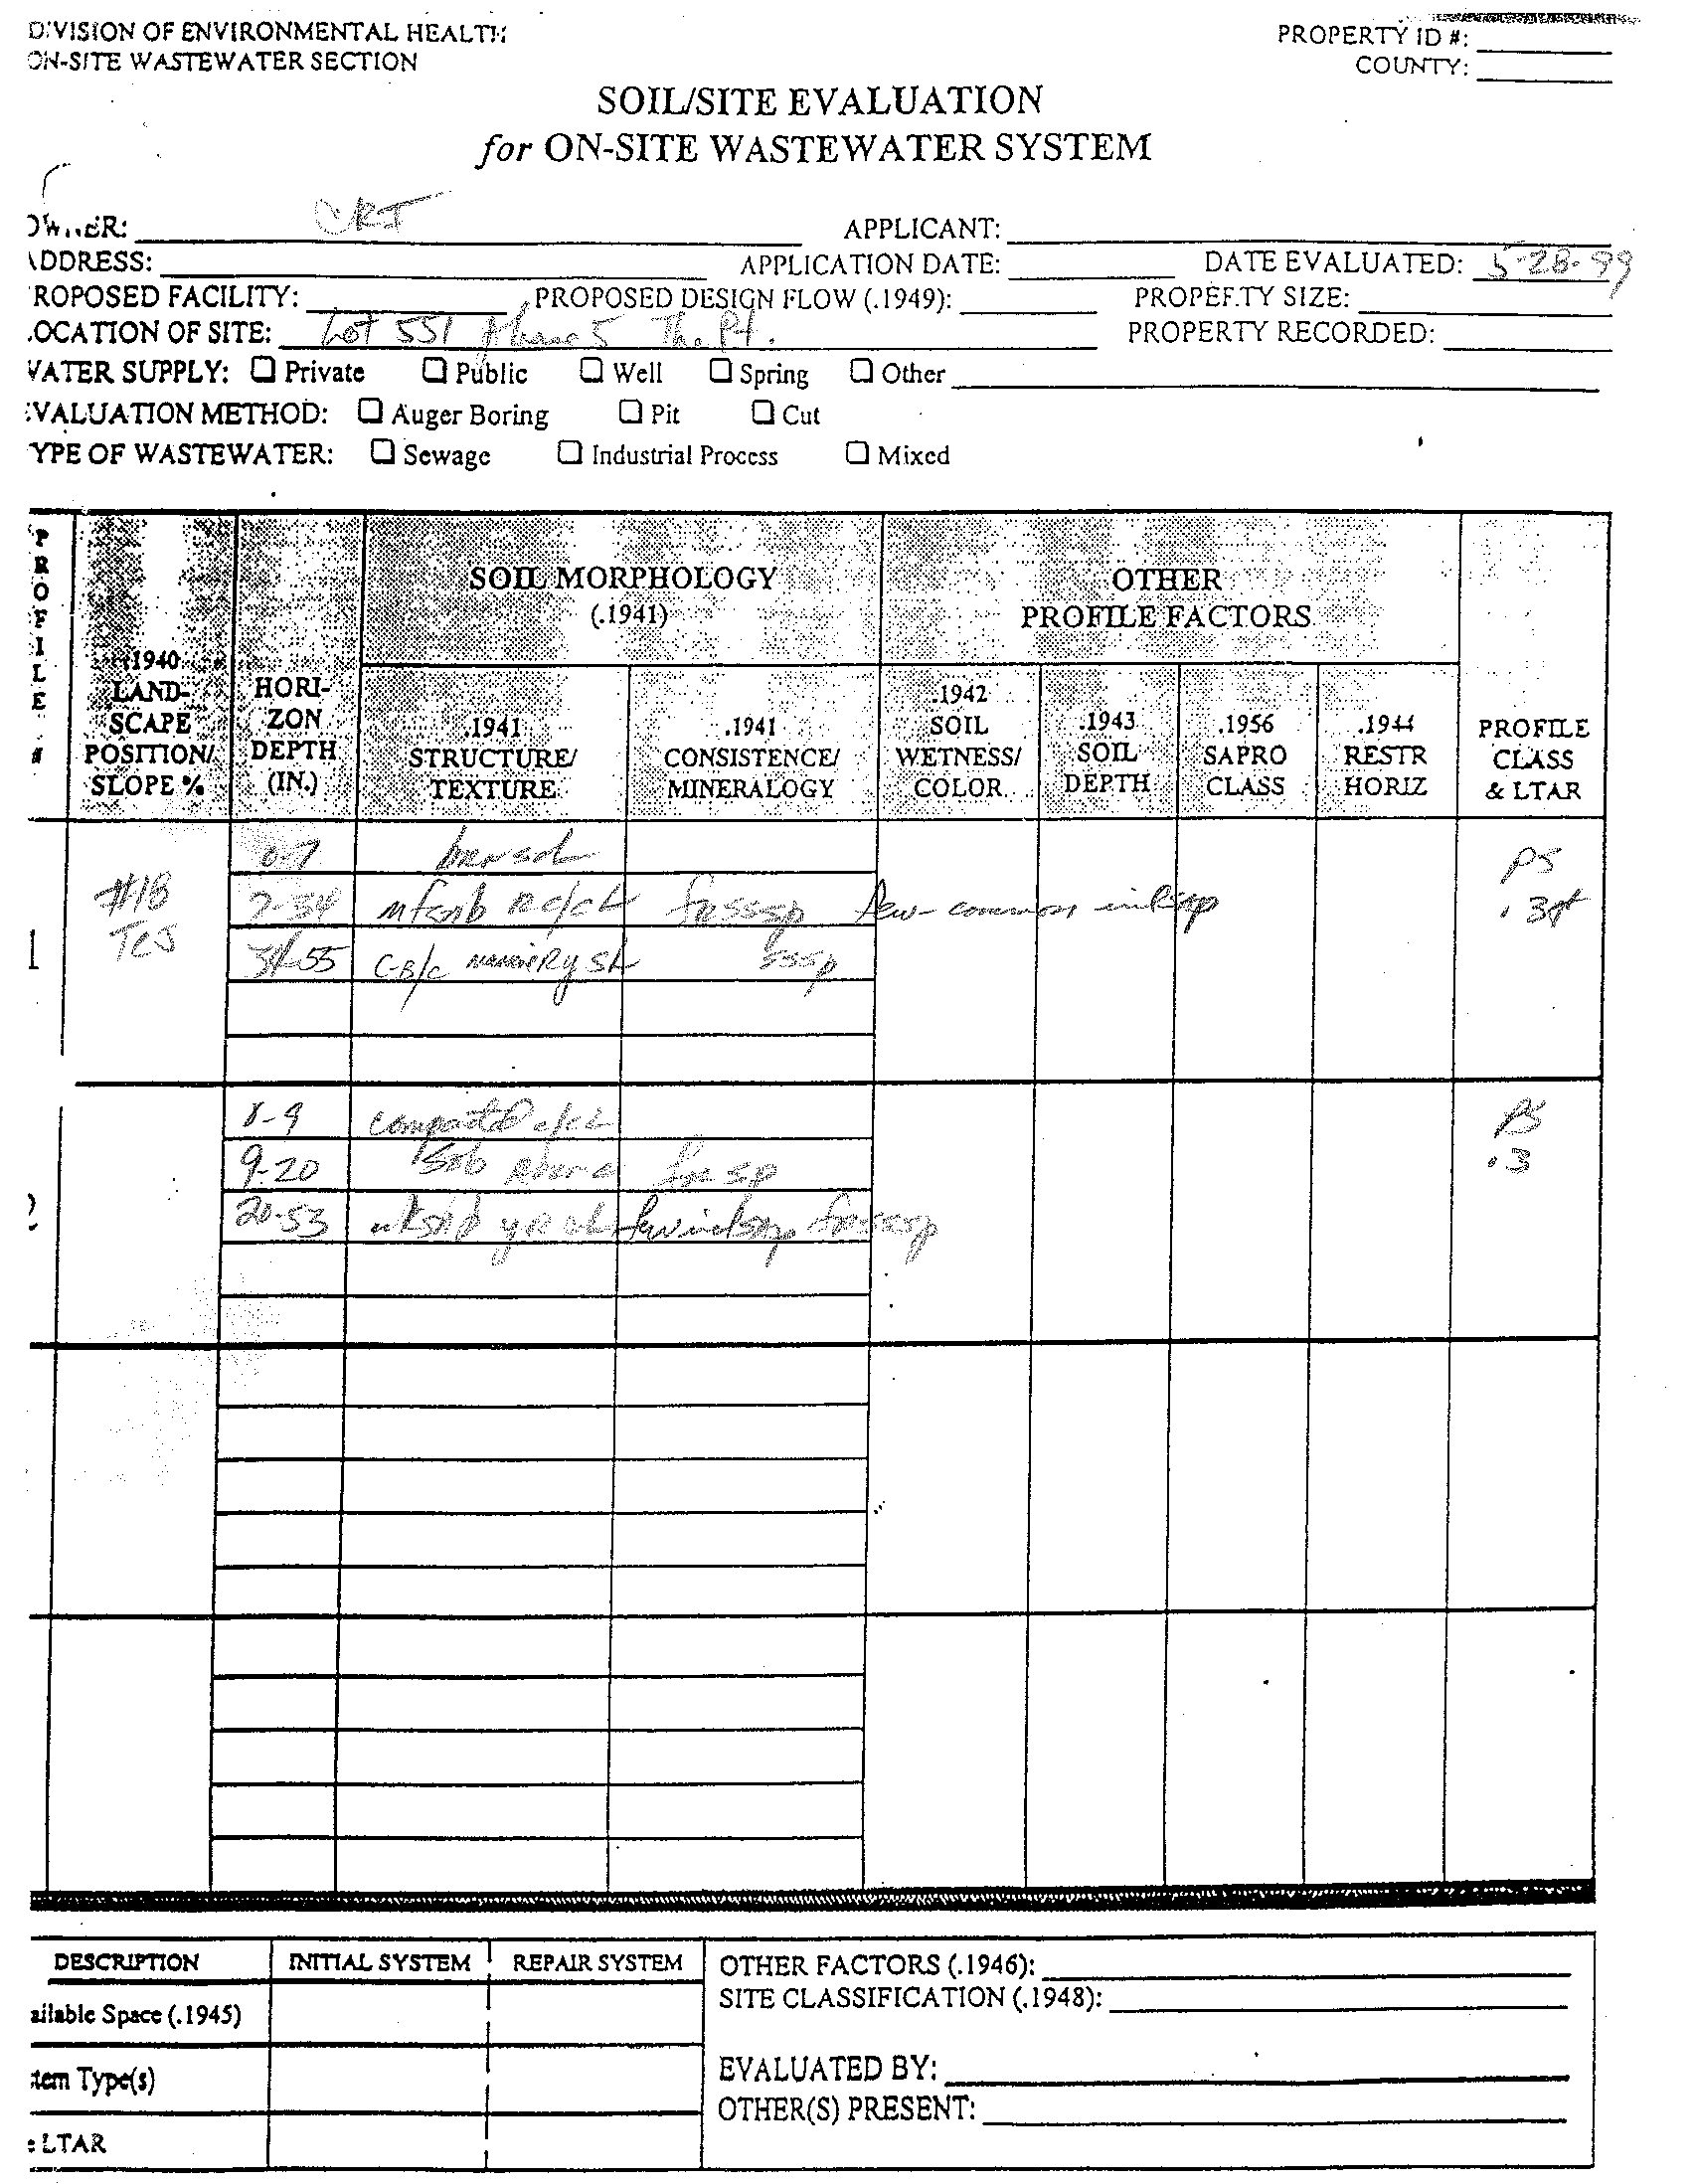 DIVISION OF ENVIRONMENTAL HEALTH
ON-SITE WASTEWATER SECTION
PROPERTY ID #:
COUNTY:
SOIL/SITE EVALUATION
for ON-SITE WASTEWATER SYSTEM
OWNER: CRI APPLICANT:
ADDRESS: APPLICATION DATE: DATE EVALUATED: 5-28-99
ROPOSED FACILITY: PROPOSED DESIGN FLOW (.1949): PROPERTY SIZE:
LOCATION OF SITE: Lot 551 phase 5 The Pt. PROPERTY RECORDED:
WATER SUPPLY: Private Public Well Spring Other
EVALUATION METHOD: Auger Boring Pit Cut
TYPE OF WASTEWATER: Sewage Industrial Process Mixed
PROFILE #
.1940 LAND-SCAPE POSITION/ SLOPE %
HORI-ZON DEPTH (IN.)
SOIL MORPHOLOGY (.1941)
.1941 STRUCTURE/ TEXTURE
.1941 CONSISTENCE/ MINERALOGY
OTHER PROFILE FACTORS
.1942 SOIL WETNESS/ COLOR
.1943 SOIL DEPTH
.1956 SAPRO CLASS
.1944 RESTR HORIZ
PROFILE CLASS & LTAR
1
#18
TCJ
0-7
7-34 few-common
34-55 sssp
PS
.3
2
9 compacted
9-20 sbk
20-53
PS
.3
DESCRIPTION INITIAL SYSTEM REPAIR SYSTEM
ailable Space (.1945)
tem Type(s)
LTAR
OTHER FACTORS (.1946):
SITE CLASSIFICATION (.1948):
EVALUATED BY:
OTHER(S) PRESENT: